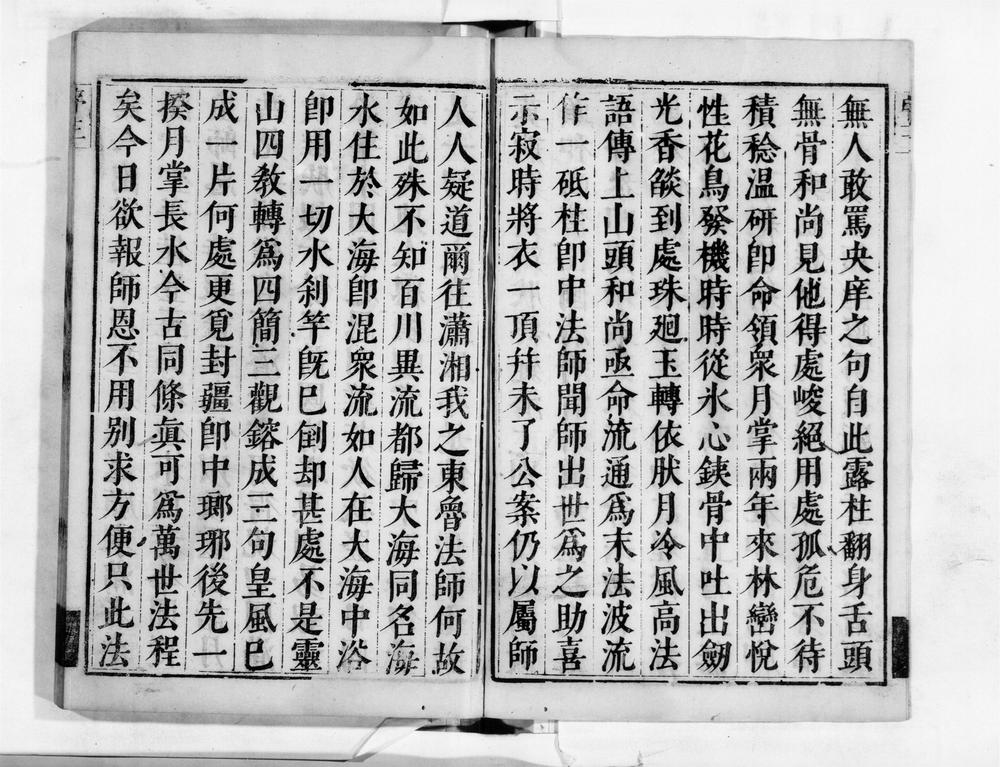 無人敢罵央庠之句自此露柱翻身舌頭
無骨和尚見他得處峻絕用處孤危不待
積稔温研卽命領衆月掌兩年來林巒悅
性花鳥發機時時從氷心鉄骨中吐出劒
光香燄到處珠廻玉轉依肰月冷風高法
語傳上山頭和尚亟命流通爲末法波流
作一砥柱卽中法師聞師出世爲之助喜
示寂時將衣一頂幷未了公案仍以屬師
人人疑道爾往瀟湘我之東魯法師何故
如此殊不知百川異流都歸大海同名海
水住於大海卽混衆流如人在大海中浴
卽用一切水刹竿旣已倒却甚處不是靈
山四敎轉爲四簡三觀鎔成三句皇風已
成一片何處更覓封疆卽中瑯琊後先一
揆月掌長水今古同條眞可爲萬世法程
矣今日欲報師恩不用别求方便只此法